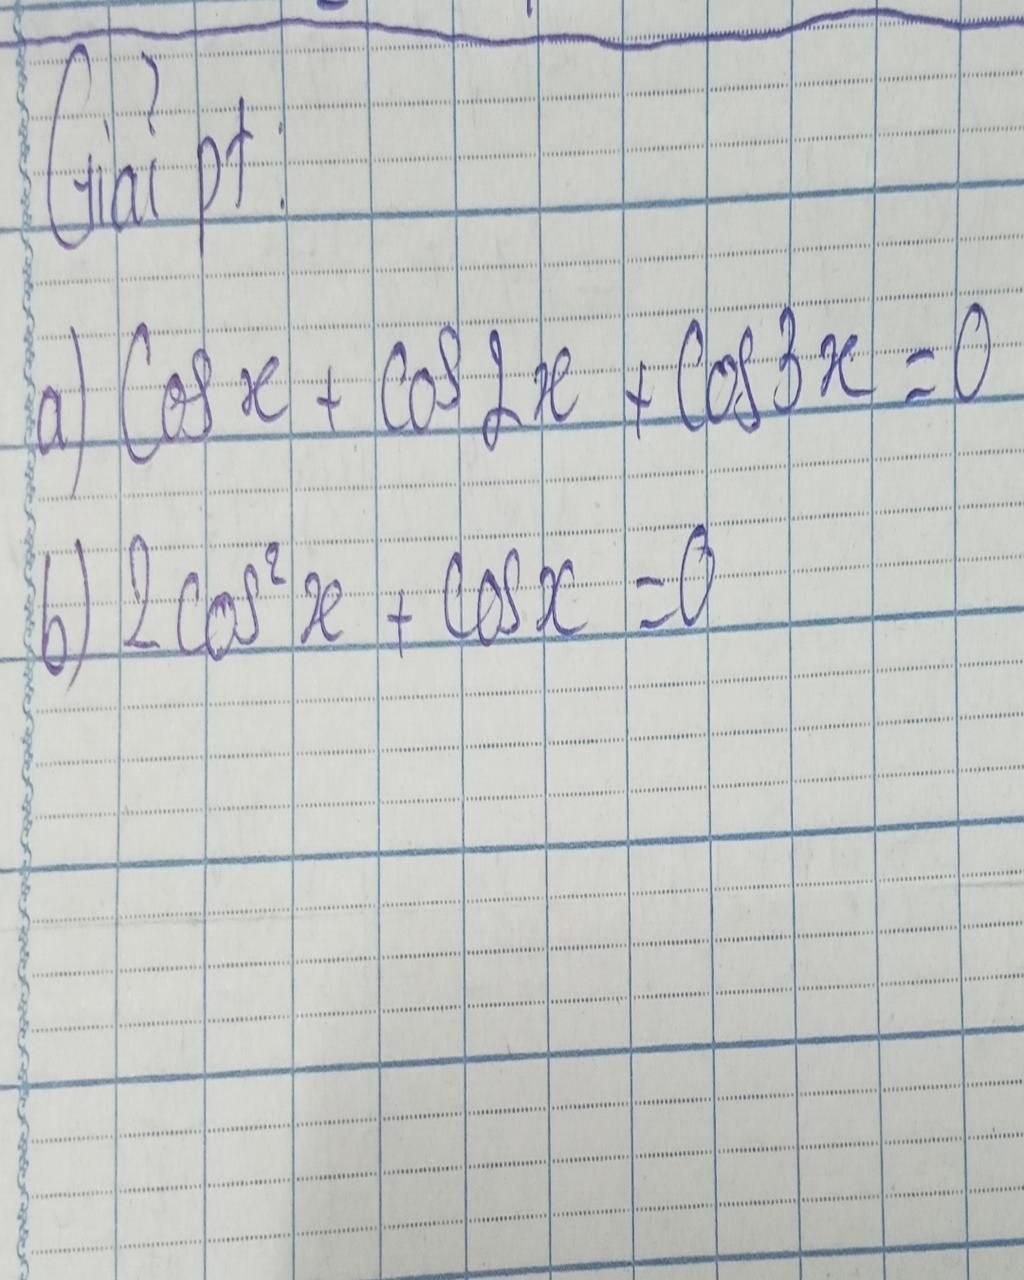 Giải pt:
a) Cos x + Cos 2x + Cos 3x = 0
b) 2 cos² x + Cos x = 0